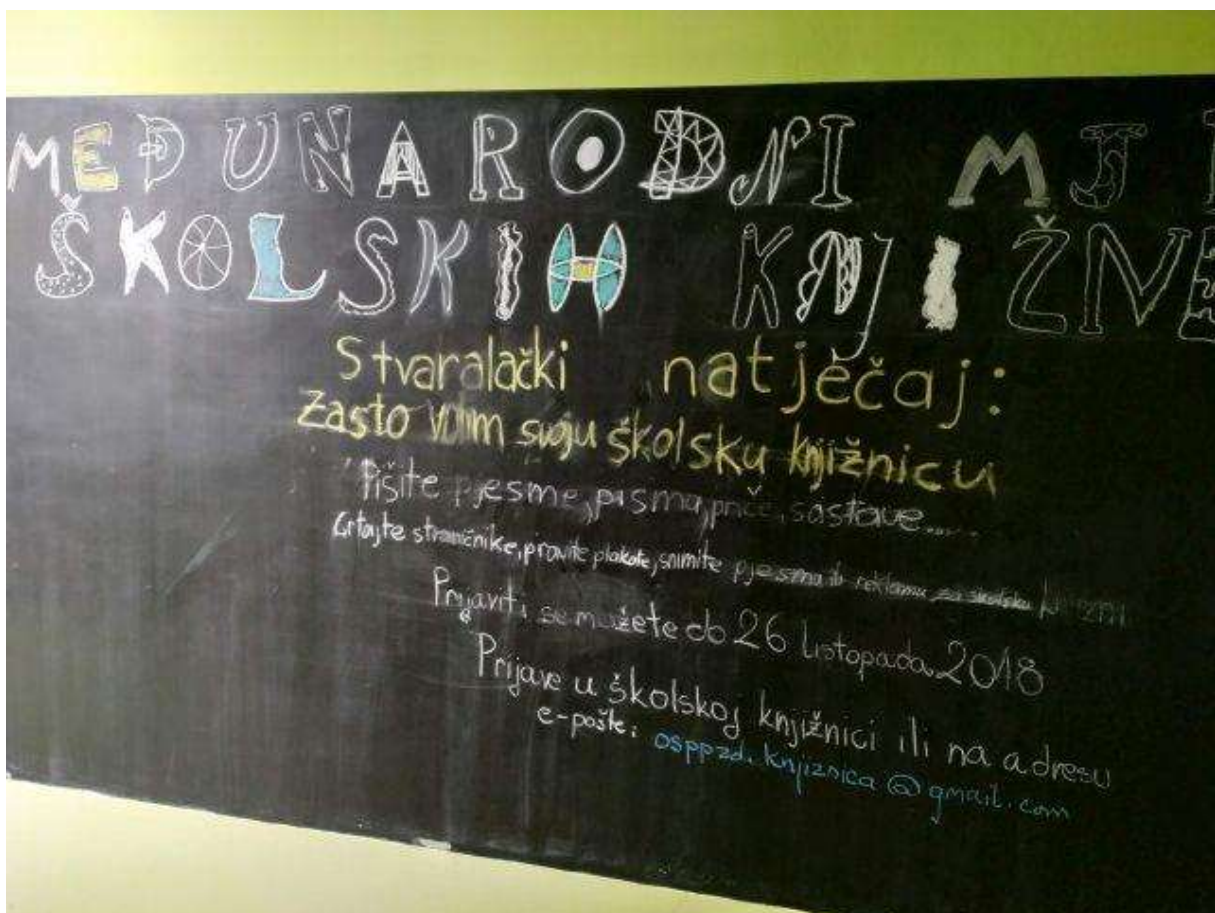 MEĐUNARODNI MJ
ŠKOLSKIH KNJIŽN
Stvaralački natječaj:
Zašto volim svoju školsku knjižnicu
Pišite pjesme, pisma, priče, sastave.....
Crtajte straničnike, pravite plakate, snimite pjesma ili reklamu za školsku
Prijaviti se možete do 26 Listopada 2018
Prijave u školskoj knjižnici ili na adresu
e-pošte: osppzd.knjiznica@gmail.com